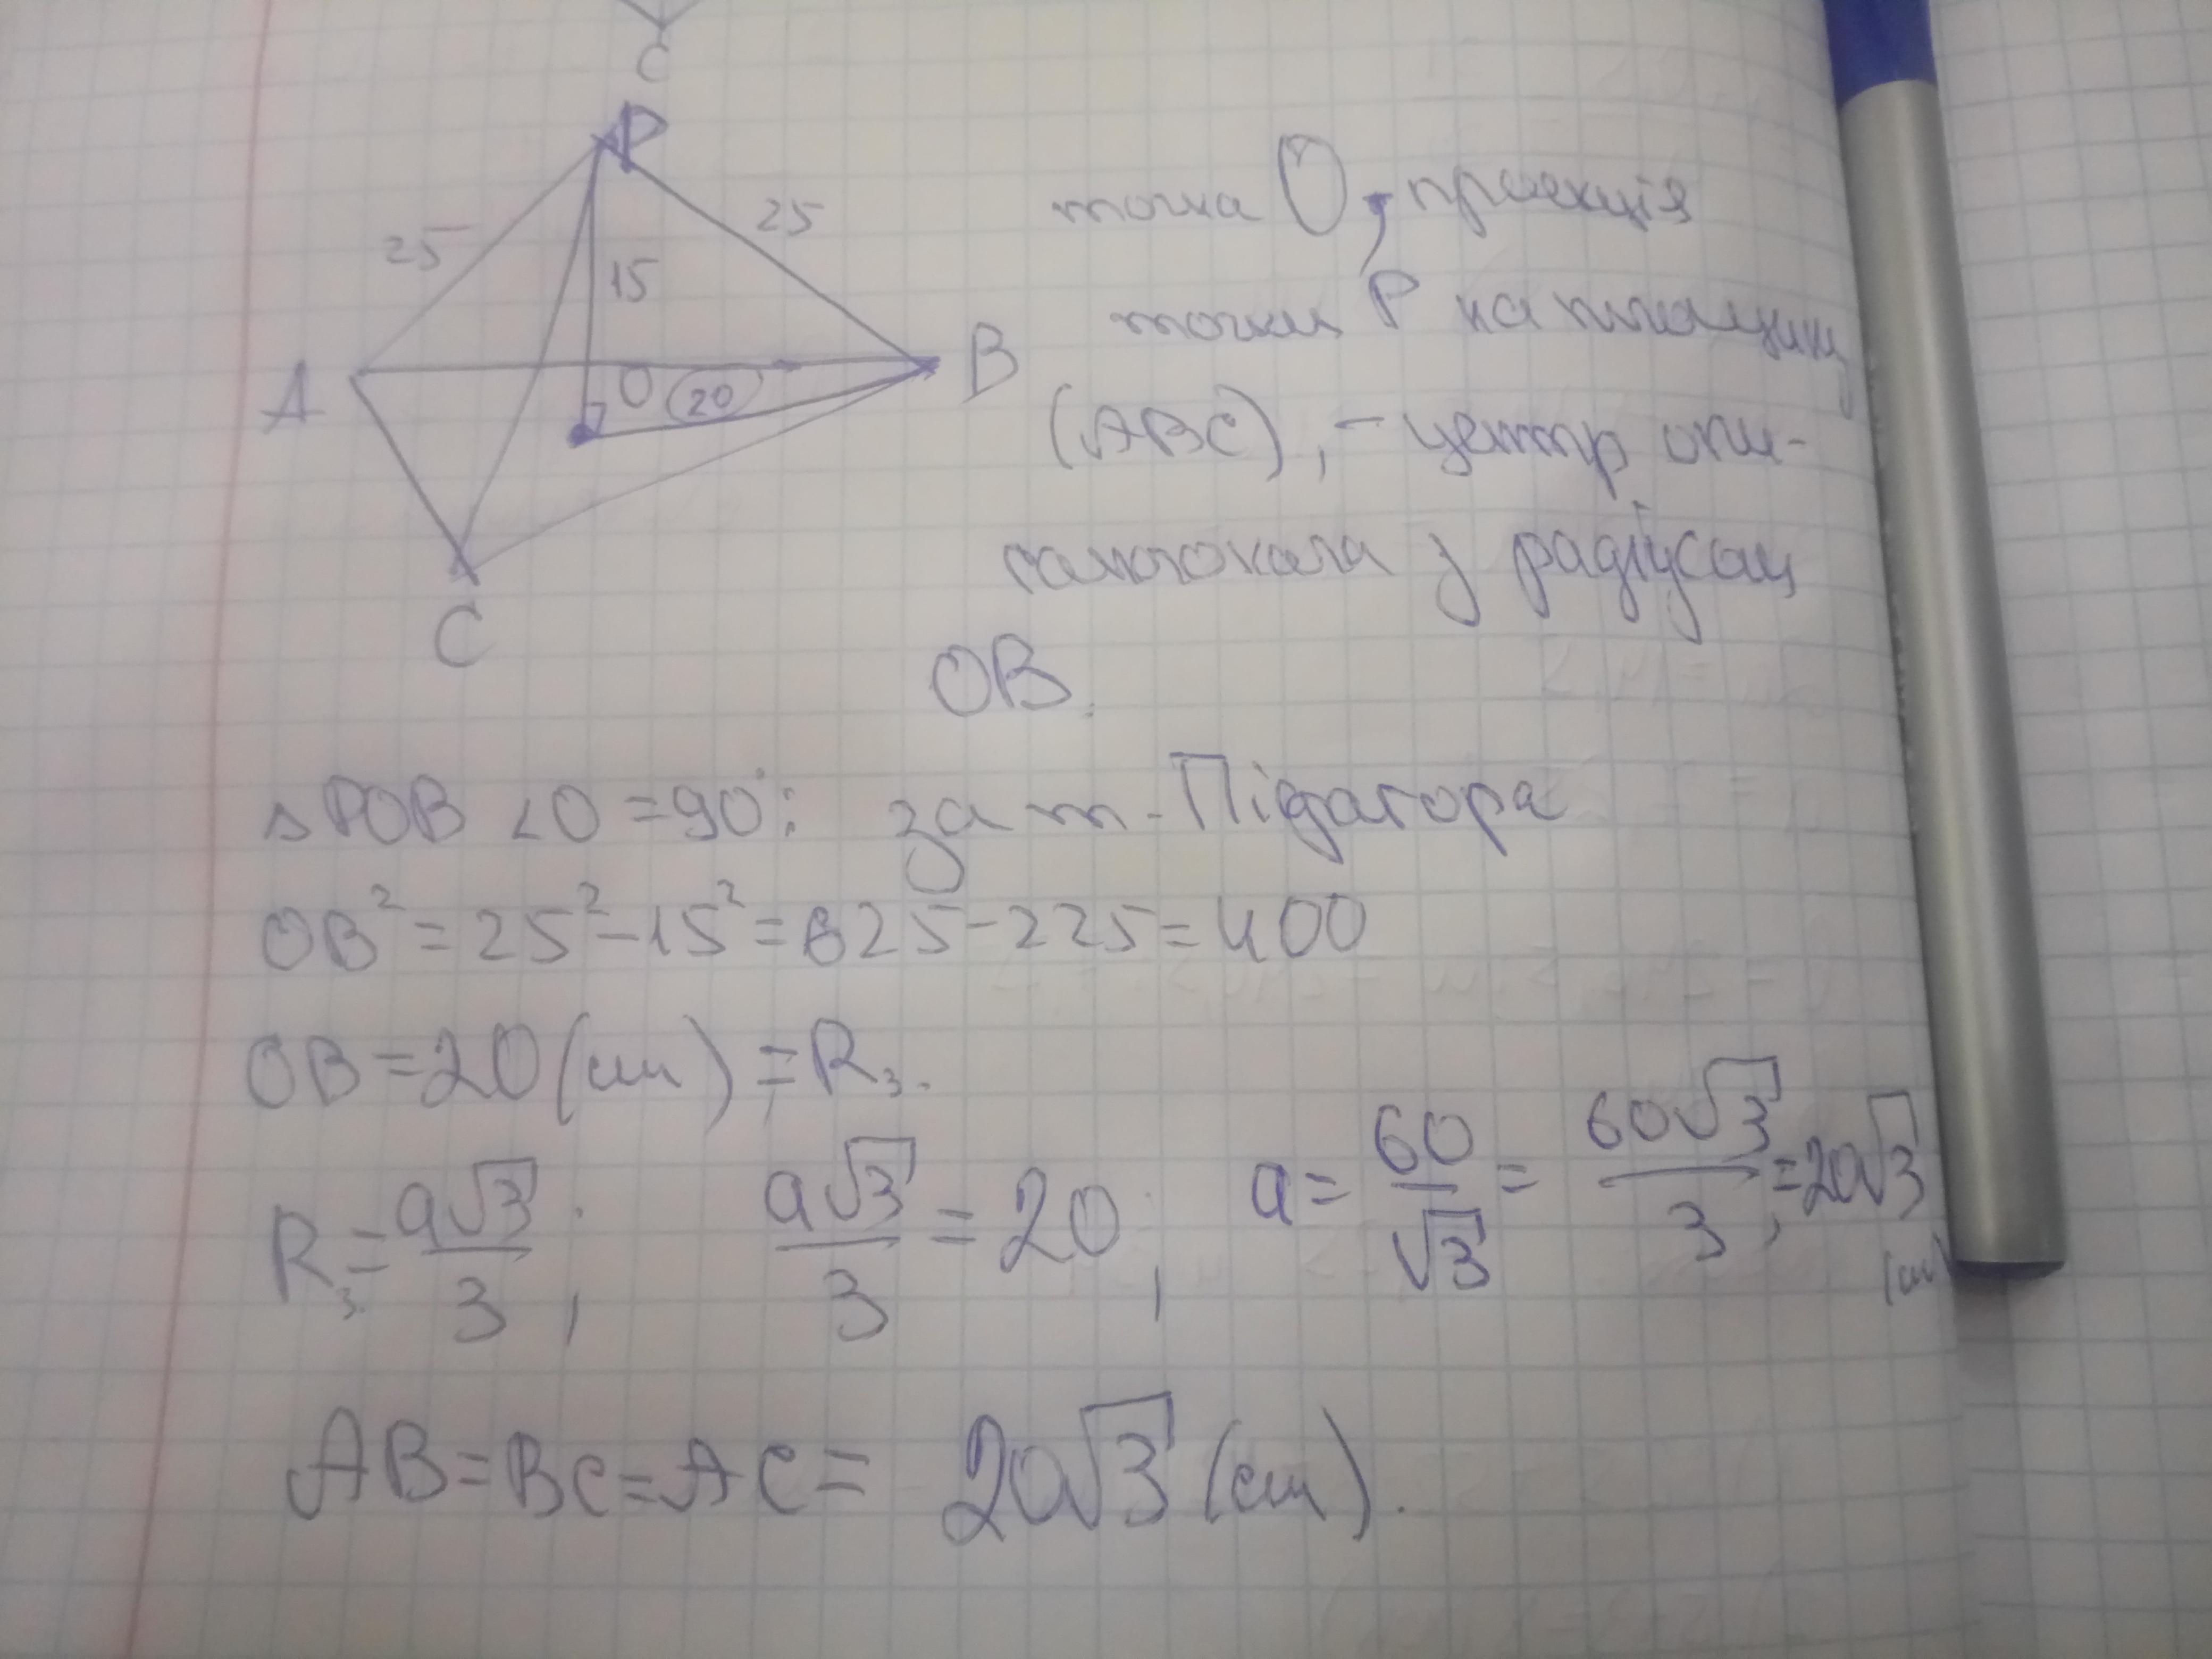 C
P
25
25
15
A
O
20
B
C
точка O, проекція
точки P на площину
(ABC), - центр опи-
саного кола з радіусом
OB.
△POB ∠O = 90°: за т. Піфагора
OB² = 25² - 15² = 625 - 225 = 400
OB = 20 (см) ; = R₃.
R₃ = a√3/3 ; a√3/3 = 20 ; a = 60/√3 = 60√3/3 ; = 20√3 (см)
AB = BC = AC = 20√3 (см).